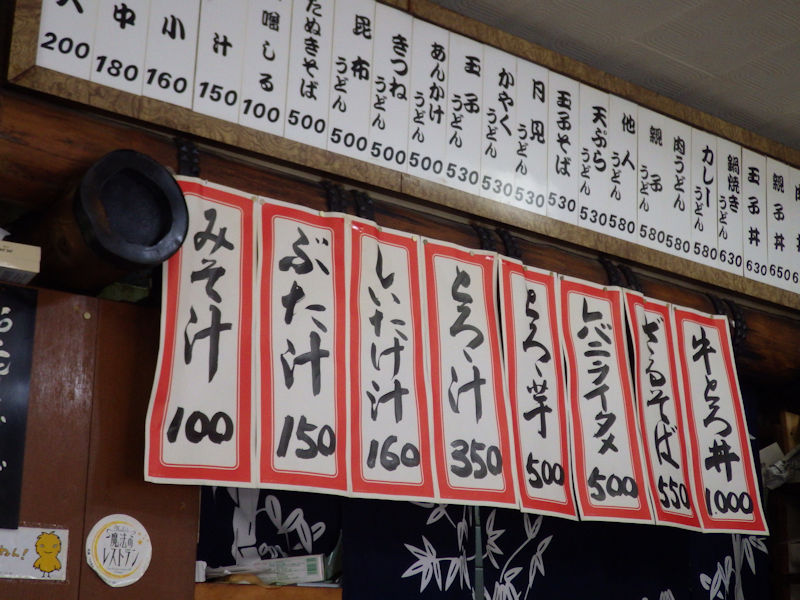 大 200
中 180
小 160
汁 150
噌しる 100
たぬきそば 500
昆布うどん 500
きつねうどん 500
あんかけうどん 500
玉子うどん 530
かやくうどん 530
月見うどん 530
玉子そば 530
天ぷらうどん 530
他人うどん 580
親子うどん 580
肉うどん 580
カレーうどん 580
鍋焼きうどん 630
玉子丼 630
親子丼 650
みそ汁 100
ぶた汁 150
しいたけ汁 160
とろろ汁 350
とろろ芋 500
レバニライタメ 500
ざるそば 550
牛とろ丼 1000
魔法の
レストラン